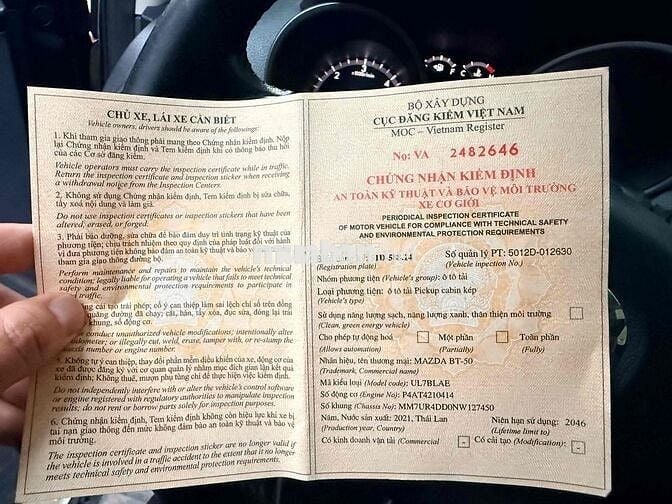 CHỦ XE, LÁI XE CẦN BIẾT
Vehicle owners, drivers should be aware of the followings:
1. Khi tham gia giao thông phải mang theo Chứng nhận kiểm định. Nộp
lại Chứng nhận kiểm định và Tem kiểm định khi có thông báo thu hồi
của các Cơ sở đăng kiểm.
Vehicle operators must carry the inspection certificate while in traffic.
Return the inspection certificate and inspection sticker when receiving
a withdrawal notice from the Inspection Centers.
2. Không sử dụng Chứng nhận kiểm định, Tem kiểm định bị sửa chữa,
tẩy xoá nội dung và làm giả.
Do not use inspection certificates or inspection stickers that have been
altered, erased, or forged.
3. Phải bảo dưỡng, sửa chữa để bảo đảm duy trì tình trạng kỹ thuật của
phương tiện; chịu trách nhiệm theo quy định của pháp luật đối với hành
vi đưa phương tiện không bảo đảm an toàn kỹ thuật và bảo vệ môi
tham gia giao thông đường bộ.
Perform maintenance and repairs to maintain the vehicle's technical
condition; legally liable for operating a vehicle that fails to meet technical
safety and environmental protection requirements to participate in
traffic.
cải tạo trái phép; cố ý can thiệp làm sai lệch chỉ số trên đồng
quãng đường đã chạy; cắt, hàn, tẩy xóa, đục sửa, đóng lại trái
khung, số động cơ.
conduct unauthorized vehicle modifications; intentionally alter
odometer; or illegally cut, weld, erase, tamper with, or re-stamp the
chassis number or engine number.
5. Không tự ý can thiệp, thay đổi phần mềm điều khiển của xe, động cơ của
xe đã được đăng ký với cơ quan quản lý nhằm mục đích gian lận kết quả
kiểm định; Không thuê, mượn phụ tùng chỉ để thực hiện việc kiểm định.
Do not independently interfere with or alter the vehicle's control software
or engine registered with regulatory authorities to manipulate inspection
results; do not rent or borrow parts solely for inspection purposes.
6. Chứng nhận kiểm định, Tem kiểm định không còn hiệu lực khi xe bị
tai nạn giao thông đến mức không đảm bảo an toàn kỹ thuật và bảo vệ
môi trường.
The inspection certificate and inspection sticker are no longer valid if
the vehicle is involved in a traffic accident to the extent that it no longer
meets technical safety and environmental protection requirements.
BỘ XÂY DỰNG
CỤC ĐĂNG KIỂM VIỆT NAM
MOC – Vietnam Register
No: VA 2482646
CHỨNG NHẬN KIỂM ĐỊNH
AN TOÀN KỸ THUẬT VÀ BẢO VỆ MÔI TRƯỜNG
XE CƠ GIỚI
PERIODICAL INSPECTION CERTIFICATE
OF MOTOR VEHICLE FOR COMPLIANCE WITH TECHNICAL SAFETY
AND ENVIRONMENTAL PROTECTION REQUIREMENTS
Số quản lý PT: 5012D-012630
(Registration plate) (Vehicle inspection No.)
Nhóm phương tiện (Vehicle's group): ô tô tải
Loại phương tiện: ô tô tải Pickup cabin kép
(Vehicle's type)
Sử dụng năng lượng sạch, năng lượng xanh, thân thiện môi trường
(Clean, green energy vehicle)
Cho phép tự động hoá Một phần Toàn phần
(Allows automation) (Partially) (Fully)
Nhãn hiệu, tên thương mại: MAZDA BT-50
(Trademark, Commercial name)
Mã kiểu loại (Model code): UL7BLAE
Số động cơ (Engine No): P4AT4210414
Số khung (Chassis No): MM7UR4DD0NW127450
Năm, Nước sản xuất: 2021, Thái Lan Niên hạn sử dụng: 2046
(Production year, Country) (Lifetime limit to)
Có kinh doanh vận tải (Commercial - Có cải tạo (Modification): -